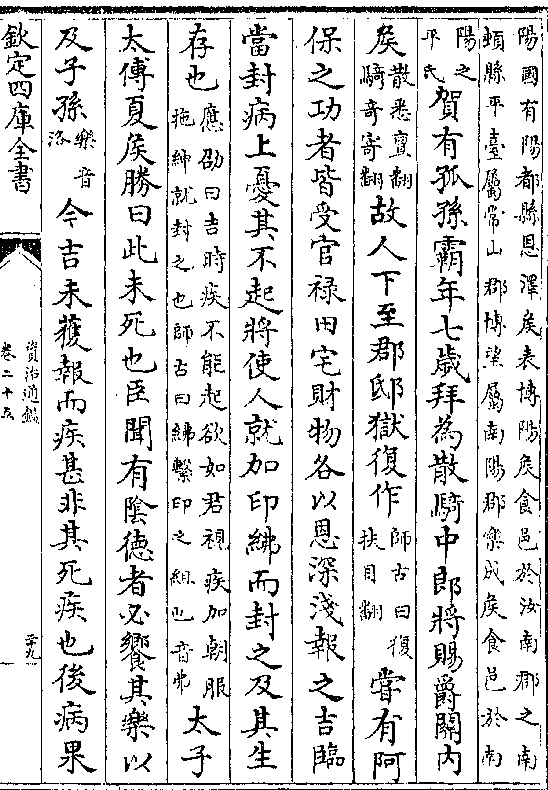 陽國有陽都縣恩澤矦表博陽矦食邑於汝南郡之南
頓縣平臺屬常山郡博望屬南陽郡樂成矦食邑於南
陽之平氏賀有孤孫霸年七歲拜為散騎中郎將賜爵關内
矦散悉亶翻騎奇寄翻故人下至郡邸獄復作師古曰復扶目翻嘗有阿
保之功者皆受官禄田宅財物各以恩深淺報之吉臨
當封病上憂其不起將使人就加印紼而封之及其生
存也應劭曰吉時疾不能起欲如君視疾加朝服拖紳就封之也師古曰紼繫印之組也音弗太子
太傅夏矦勝曰此未死也臣聞有陰德者必饗其樂以
及子孫樂音洛今吉未獲報而疾甚非其死疾也後病果
欽定四庫全書
資治通鑑
卷二十五